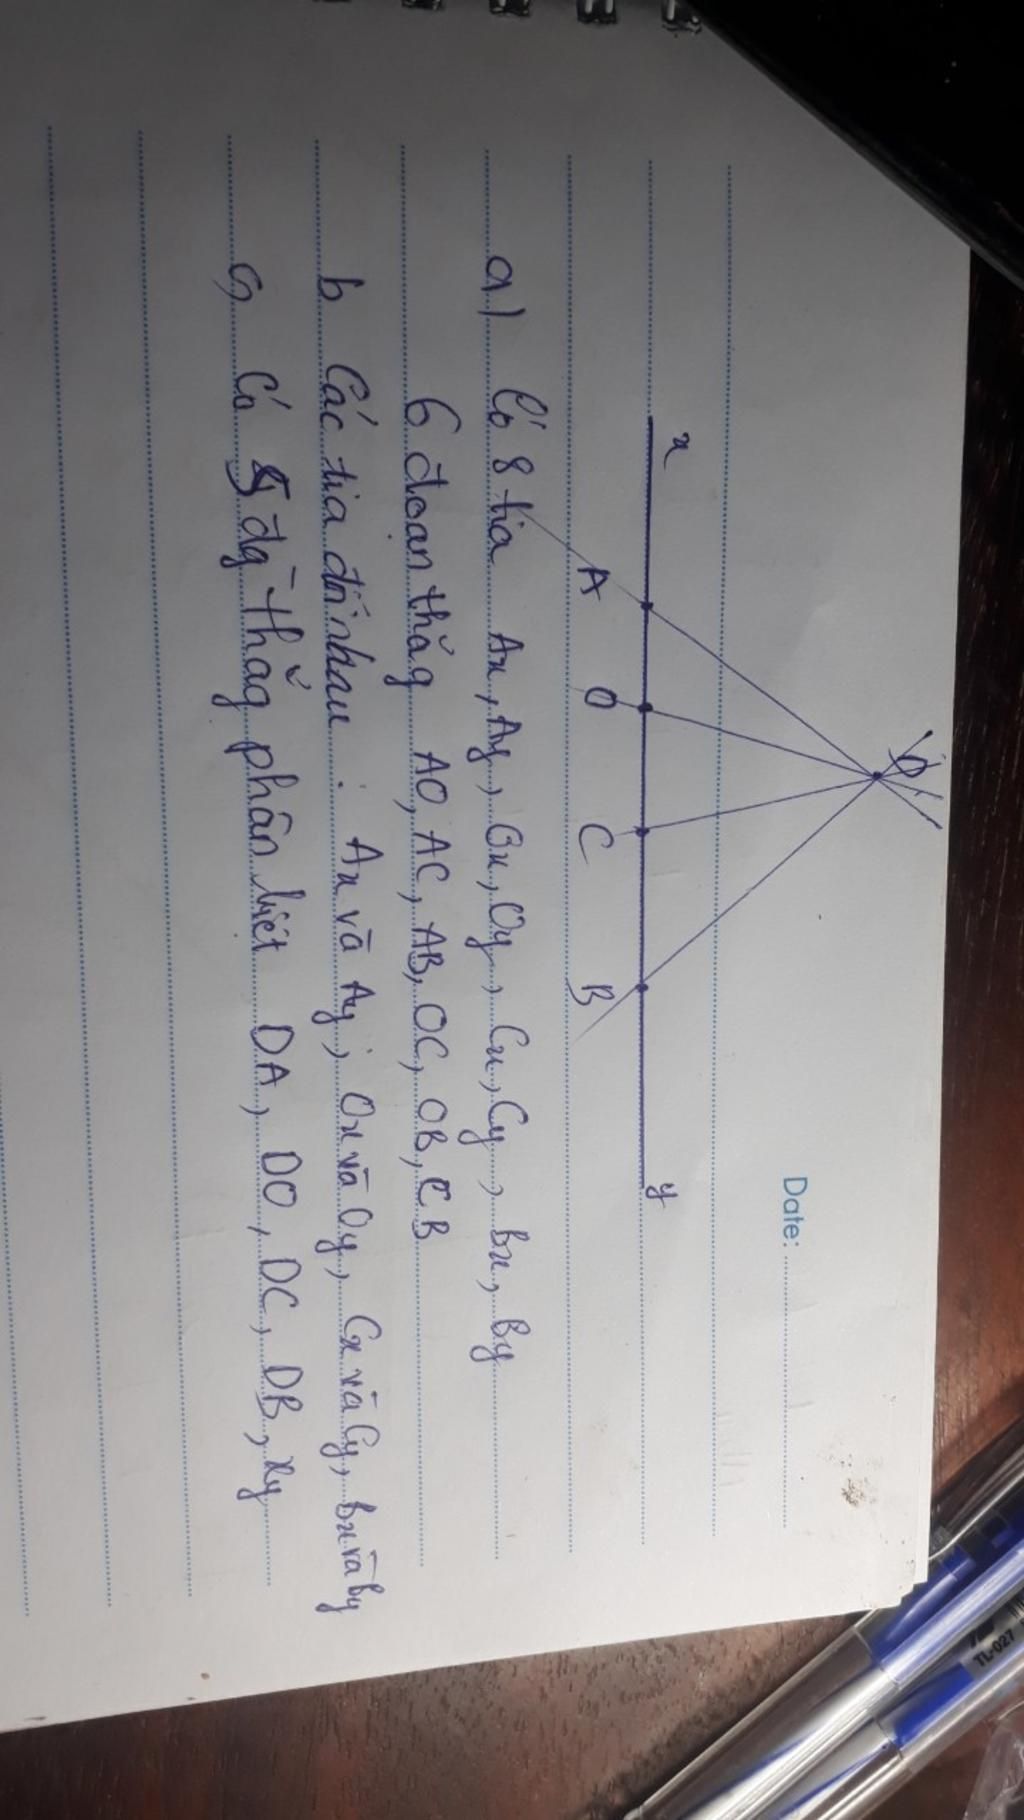 Date:
D
x A O C B y
a) Có 8 tia Ax, Ay, Ox, Oy, Cx, Cy, Bx, By
6 đoạn thẳg AO, AC, AB, OC, OB, CB
b Các tia đối nhau : Ax và Ay; Ox và Oy, Cx và Cy, Bx và By
c, Có 5 đg thẳg phân biệt DA, DO, DC, DB, xy
TL-027